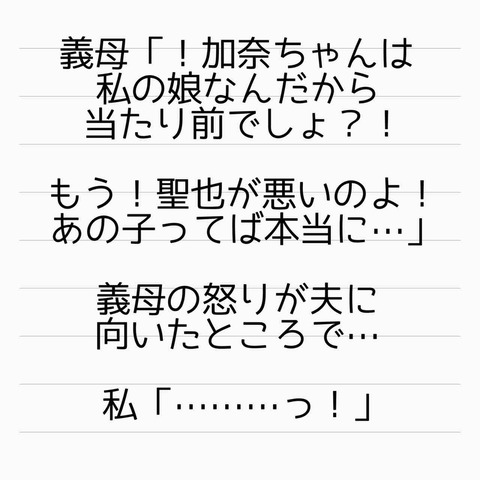 義母「！加奈ちゃんは
私の娘なんだから
当たり前でしょ？！
もう！聖也が悪いのよ！
あの子ってば本当に…」
義母の怒りが夫に
向いたところで…
私「………っ！」